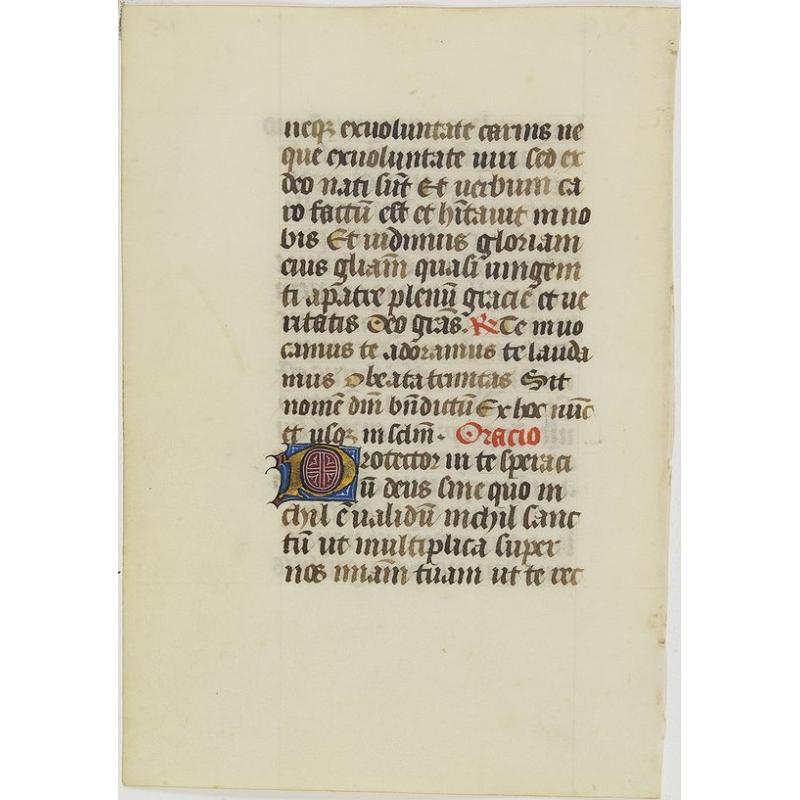 neqꝫ exuoluntate carnis ne
que exuoluntate uiri sed ex
deo nati sūt Et uerbum ca
ro factū est et hītauit in no
bis Et uidimus gloriam
eius gliam̄ quasi unigeni
ti apatre plenū gracie et ue
ritatis Deo grās. ℟ Te inuo
camus te adoramus te lauda
mus O beata trinitas Sit
nomē dn̄i bn̄dictū Ex hoc nūc
et usqꝫ in sclm̄. Oracio
Protector in te speraci
ū deus sine quo in
chil ē ualidū nichil sanc
tū ut multiplica super
nos miam̄ tuam ut te rec